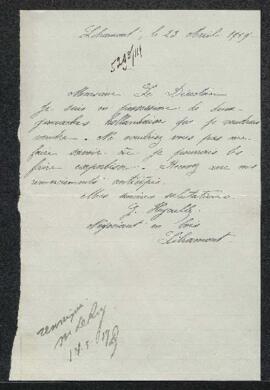 Libramont, le 23 Avril 19
5242/111
Monsieur Le Directeur
Je suis en possession de deux
gouaches hollandaises que je voudrais
vendre. Ne voudriez vous pas me
faire savoir où je pourrais les
faire expertiser. Recevez avec mes
remerciements anticipés
Mes sincères salutations
Négociant en bois
Libramont
renseigné